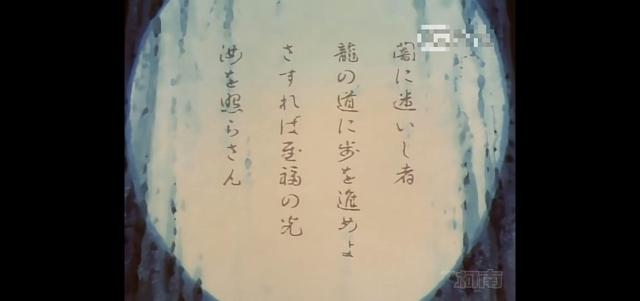 闇に迷いし者
龍の道に歩を進めよ
さすれば至福の光
汝を照らさん
柯南